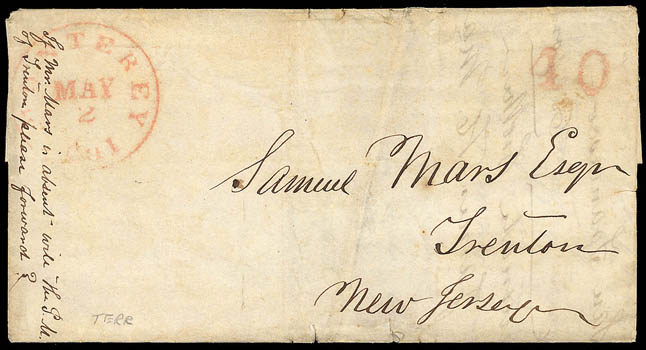 TEREY
MAY
2
40
If Mr. Mars is absent will the P.M.
of Trenton please forward
Samuel Mars Esqr
Trenton
New Jersey
TERR